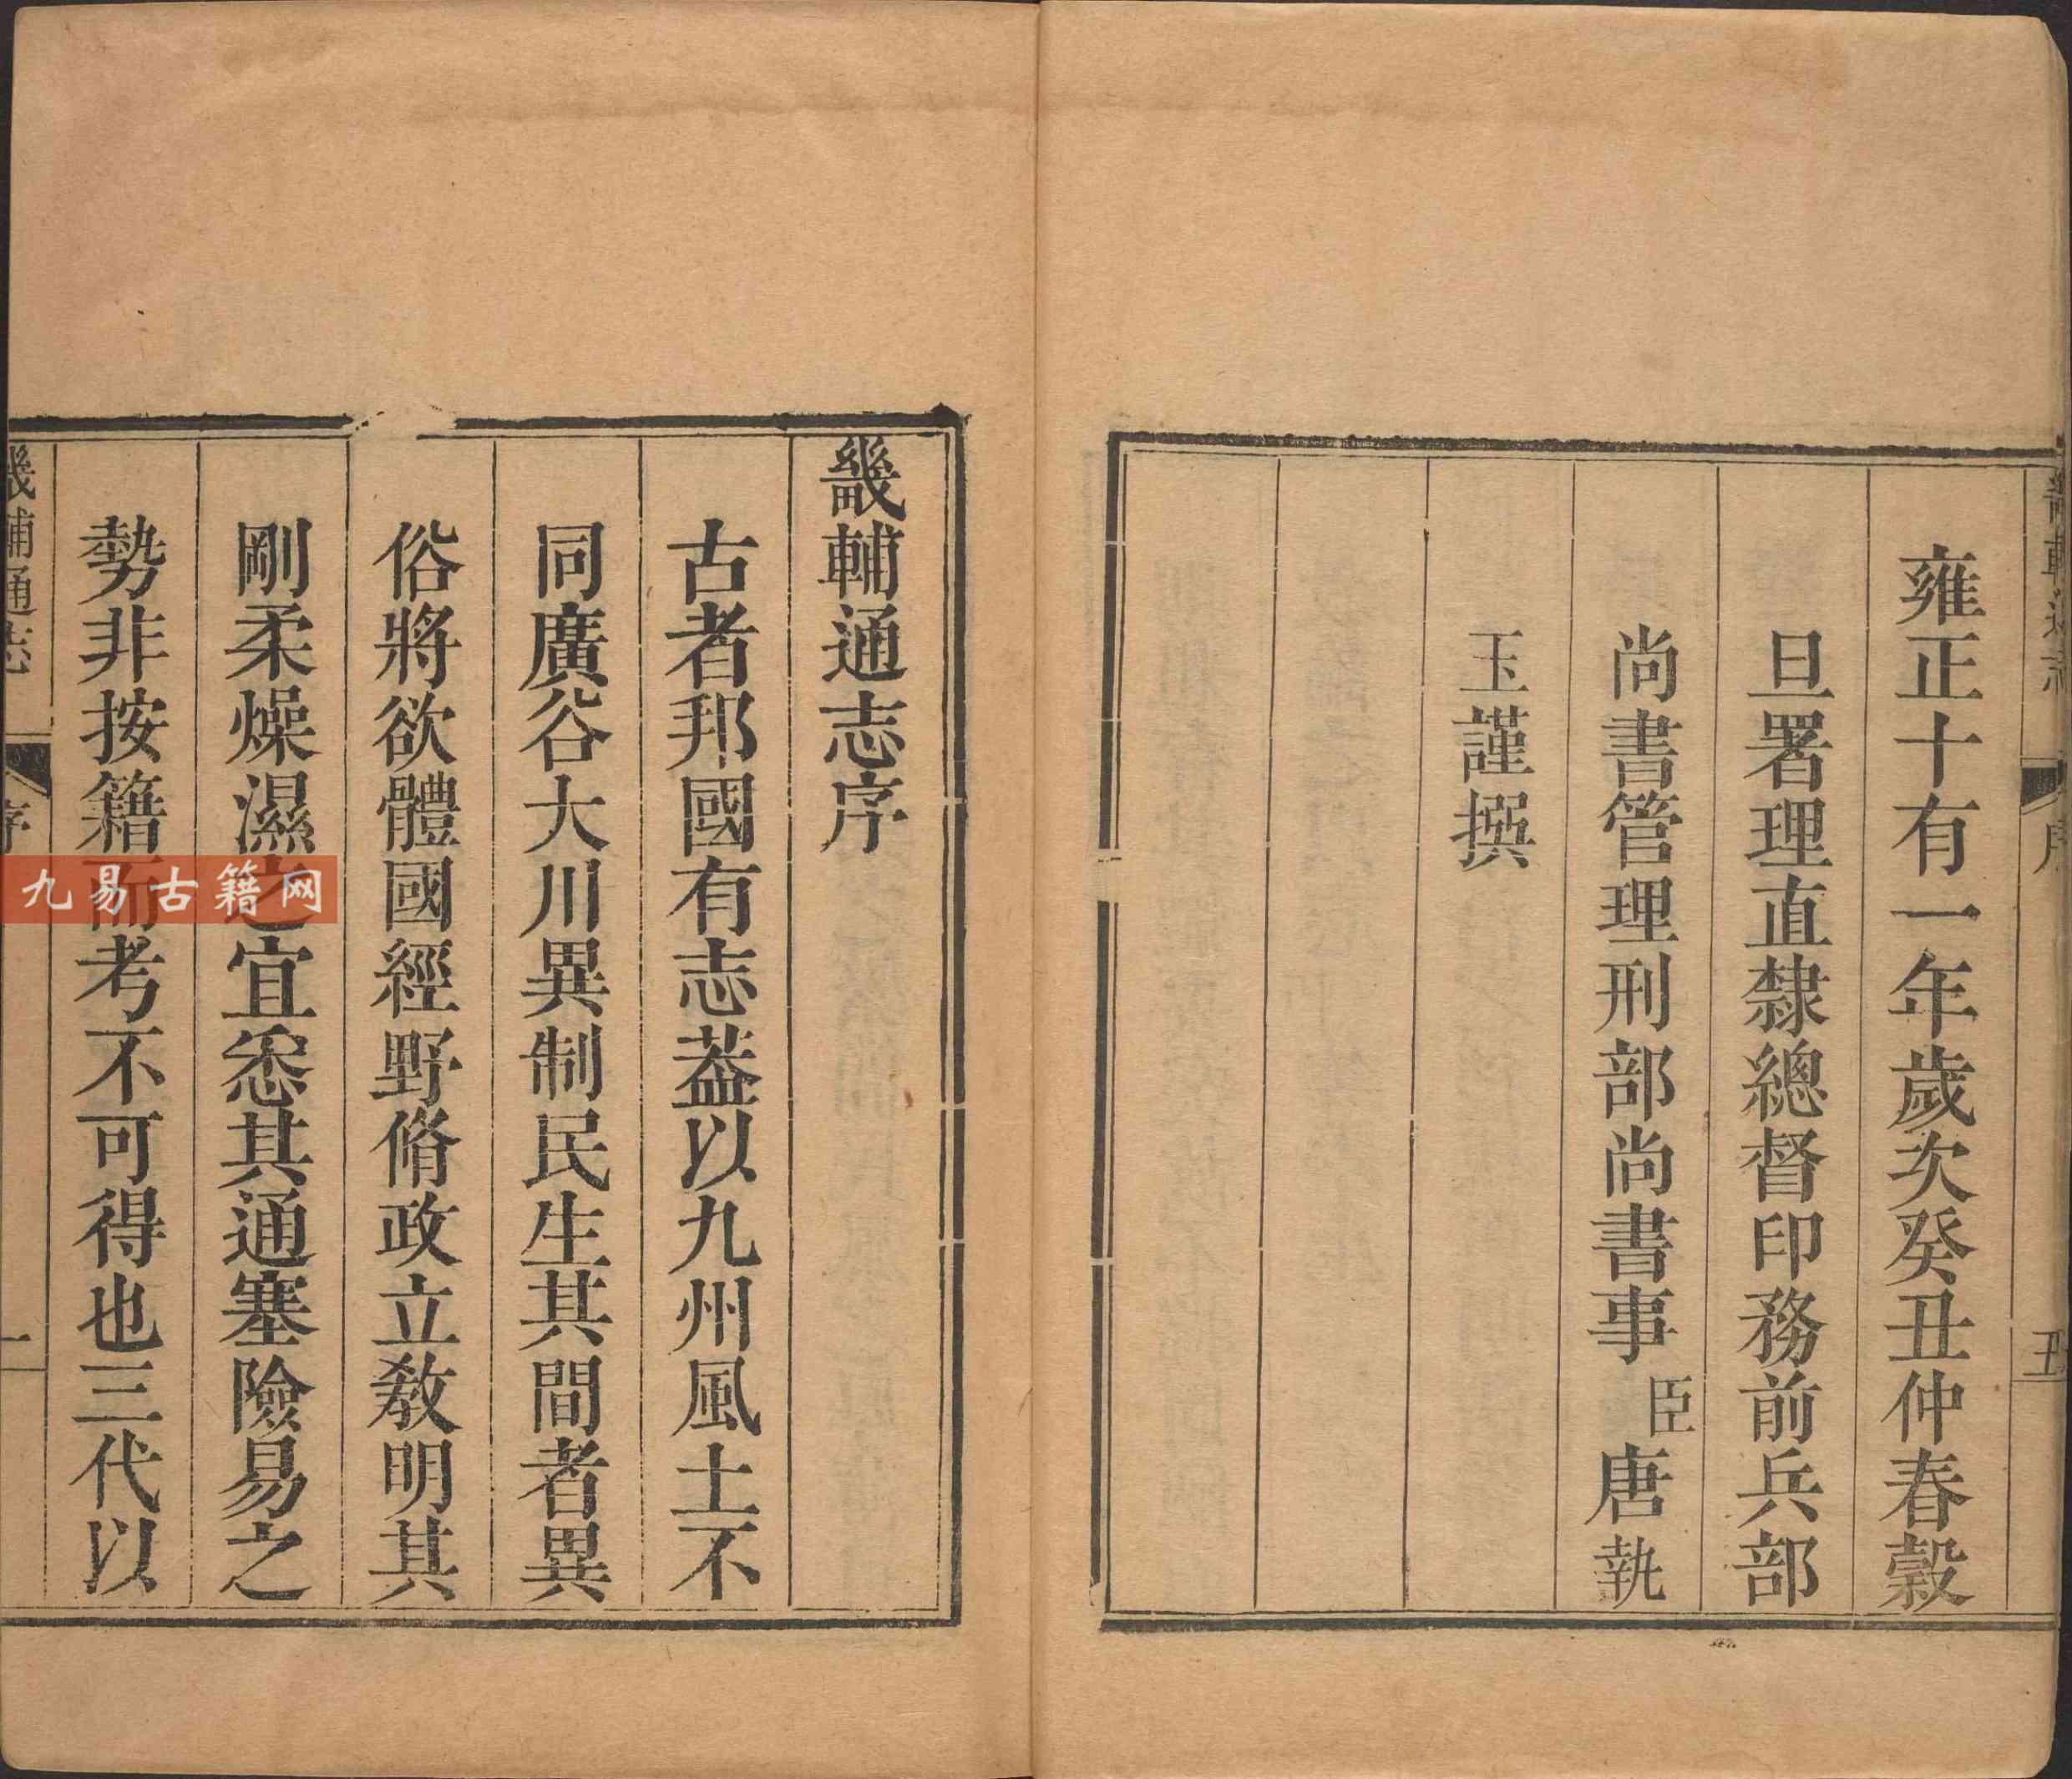 雍正十有一年歲次癸丑仲春穀
旦署理直隸總督印務前兵部
尚書管理刑部尚書事臣唐執
玉謹撰
畿輔通志序
古者邦國有志葢以九州風土不
同廣谷大川異制民生其間者異
俗將欲體國經野脩政立敎明其
剛柔燥濕之宜悉其通塞險易之
勢非按籍而考不可得也三代以
畿輔通志 序 一
九易古籍网